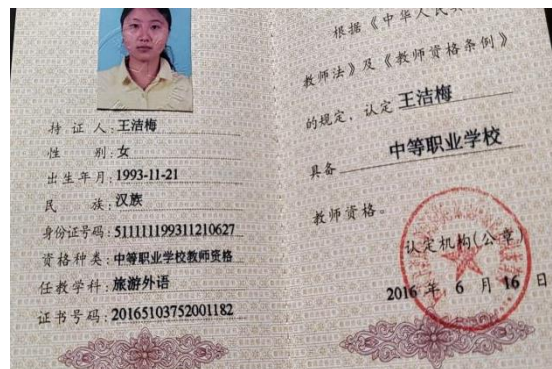 持 证 人:王洁梅
性 别:女
出生年月:1993-11-21
民 族:汉族
身份证号码:511111199311210627
资格种类:中等职业学校教师资格
任教学科:旅游外语
证书号码:20165103752001182
根据《中华人民共
教师法》及《教师资格条例》
的规定,认定 王洁梅
具备 中等职业学校
教师资格。
认定机构(公章)
2016 年 6 月 16 日